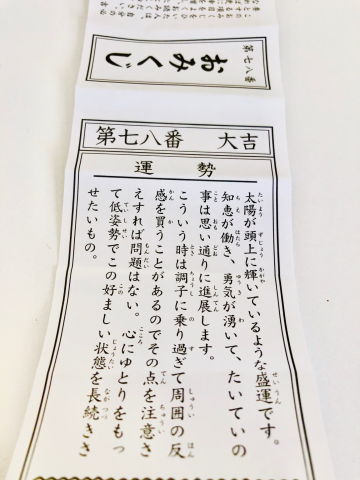 第七八番
おみくじ
第七八番 大吉
運勢
太陽が頭上に輝いているような盛運です。
知恵が働き、勇気が湧いて、たいていの
事は思い通りに進展します。
こういう時は調子に乗り過ぎて周囲の反
感を買うことがあるのでその点を注意さ
えすれば問題はない。心にゆとりをもっ
て低姿勢でこの好ましい状態を長続きさ
せたいもの。